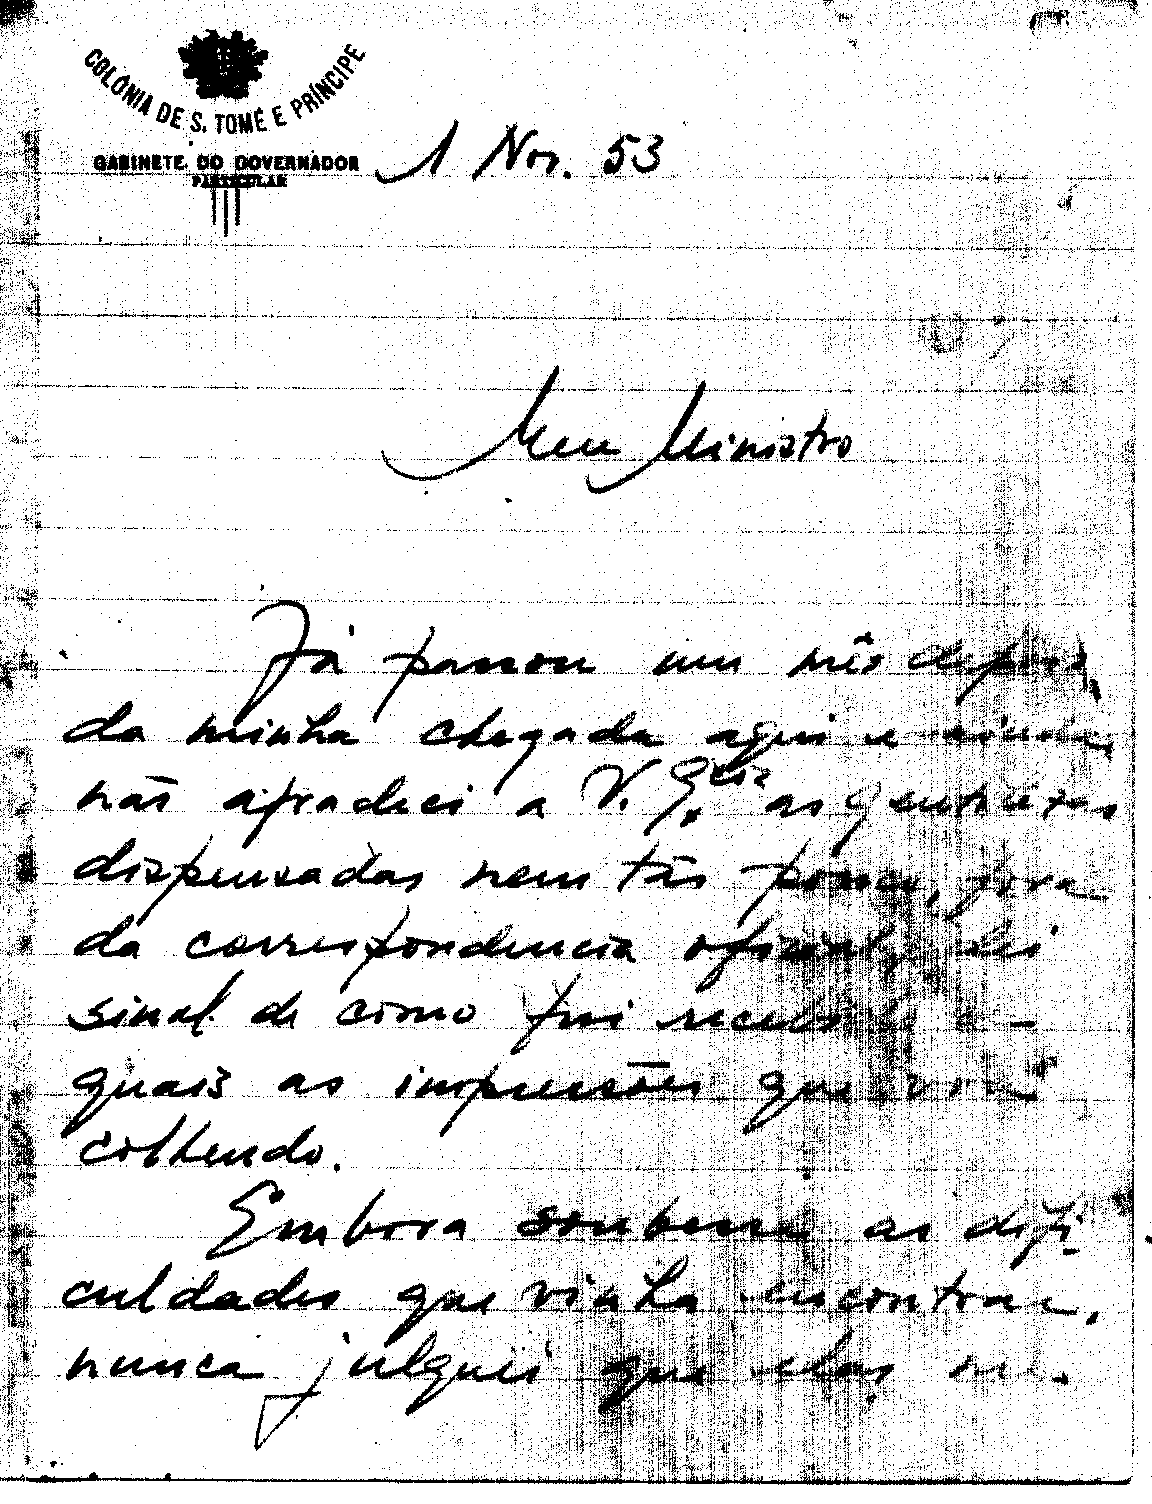 COLÓNIA DE S. TOMÉ E PRÍNCIPE
GABINETE DO GOVERNADOR
PARTICULAR
1 Nov. 53
Meu Ministro
Já passou um mês depois
da minha chegada aqui e ainda
não agradeci a V. Ex.cia as gentilezas
dispensadas nem tão pouco, fora
da correspondencia oficial, dei
sinal de como fui recebido e
quais as impressões que vou
colhendo.
Embora soubesse as difi-
culdades que vinha encontrar,
nunca julguei que elas me.